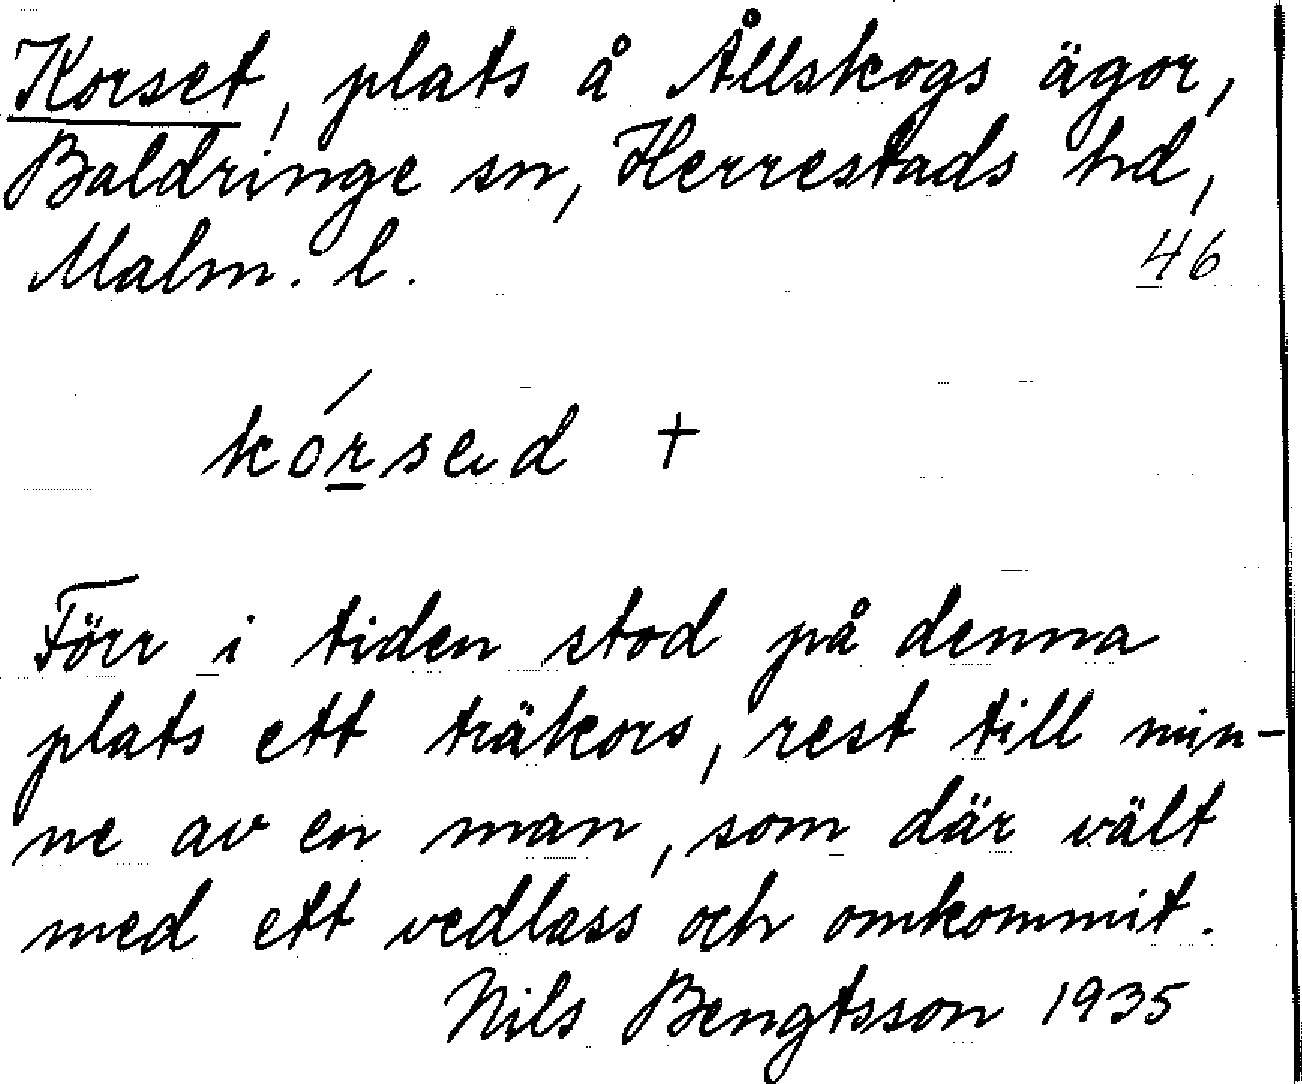 Korset, plats å Ållskogs ägor,
Baldringe sn, Herrestads hd,
Malm. l. 46
kórsed +
Förr i tiden stod på denna
plats ett träkors, rest till min-
ne av en man, som där vält
med ett vedlass och omkommit.
Nils Bengtsson 1935